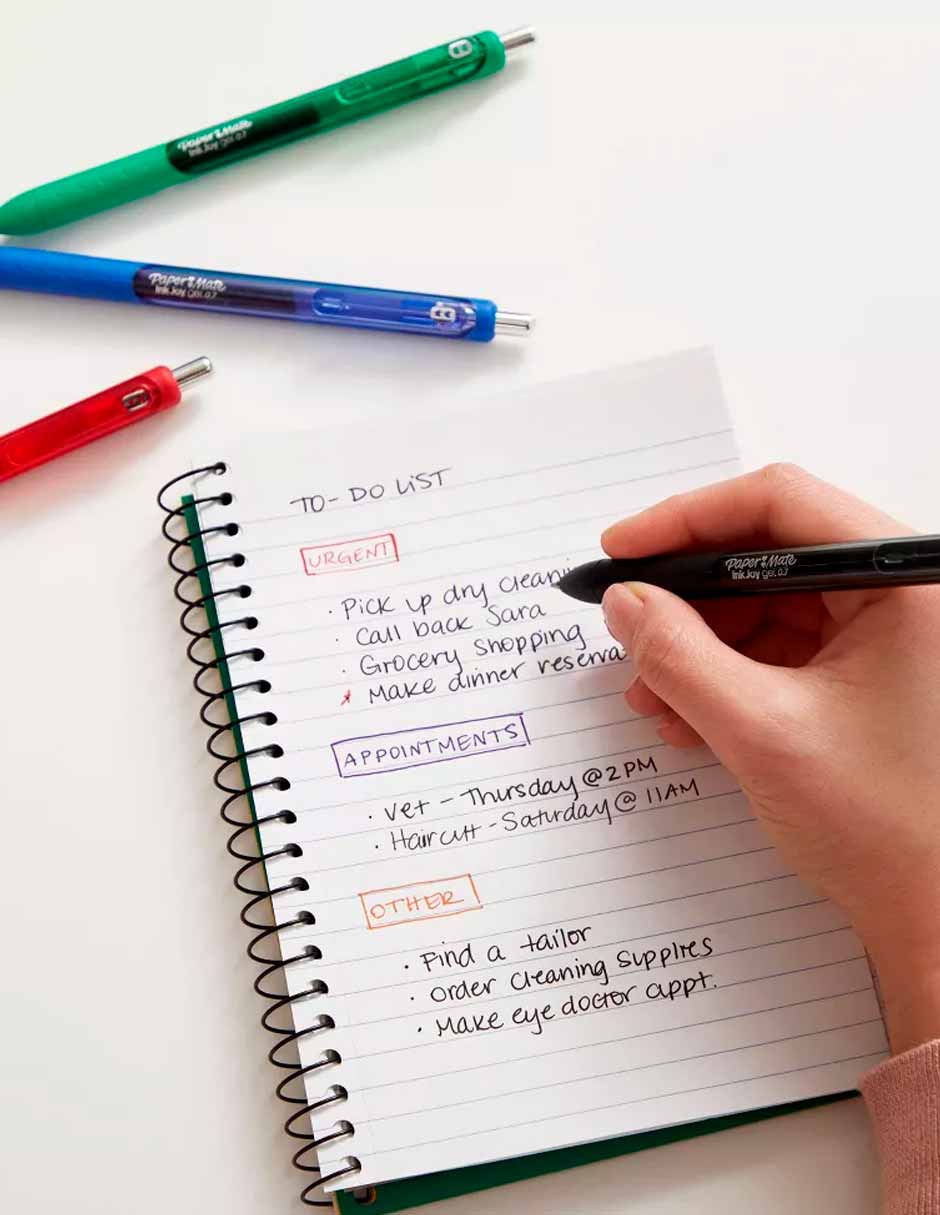 Paper Mate
InkJoy GEL 0.7
Paper Mate
InkJoy GEL 0.7
TO-DO LIST
URGENT
· Pick up dry cleani
· Call back Sara
Paper Mate
InkJoy gel 0.7
· Grocery shopping
* Make dinner reserva
APPOINTMENTS
· Vet - Thursday @ 2PM
· Haircut - Saturday @ 11AM
OTHER
· Find a tailor
· Order cleaning supplies
· Make eye doctor appt.